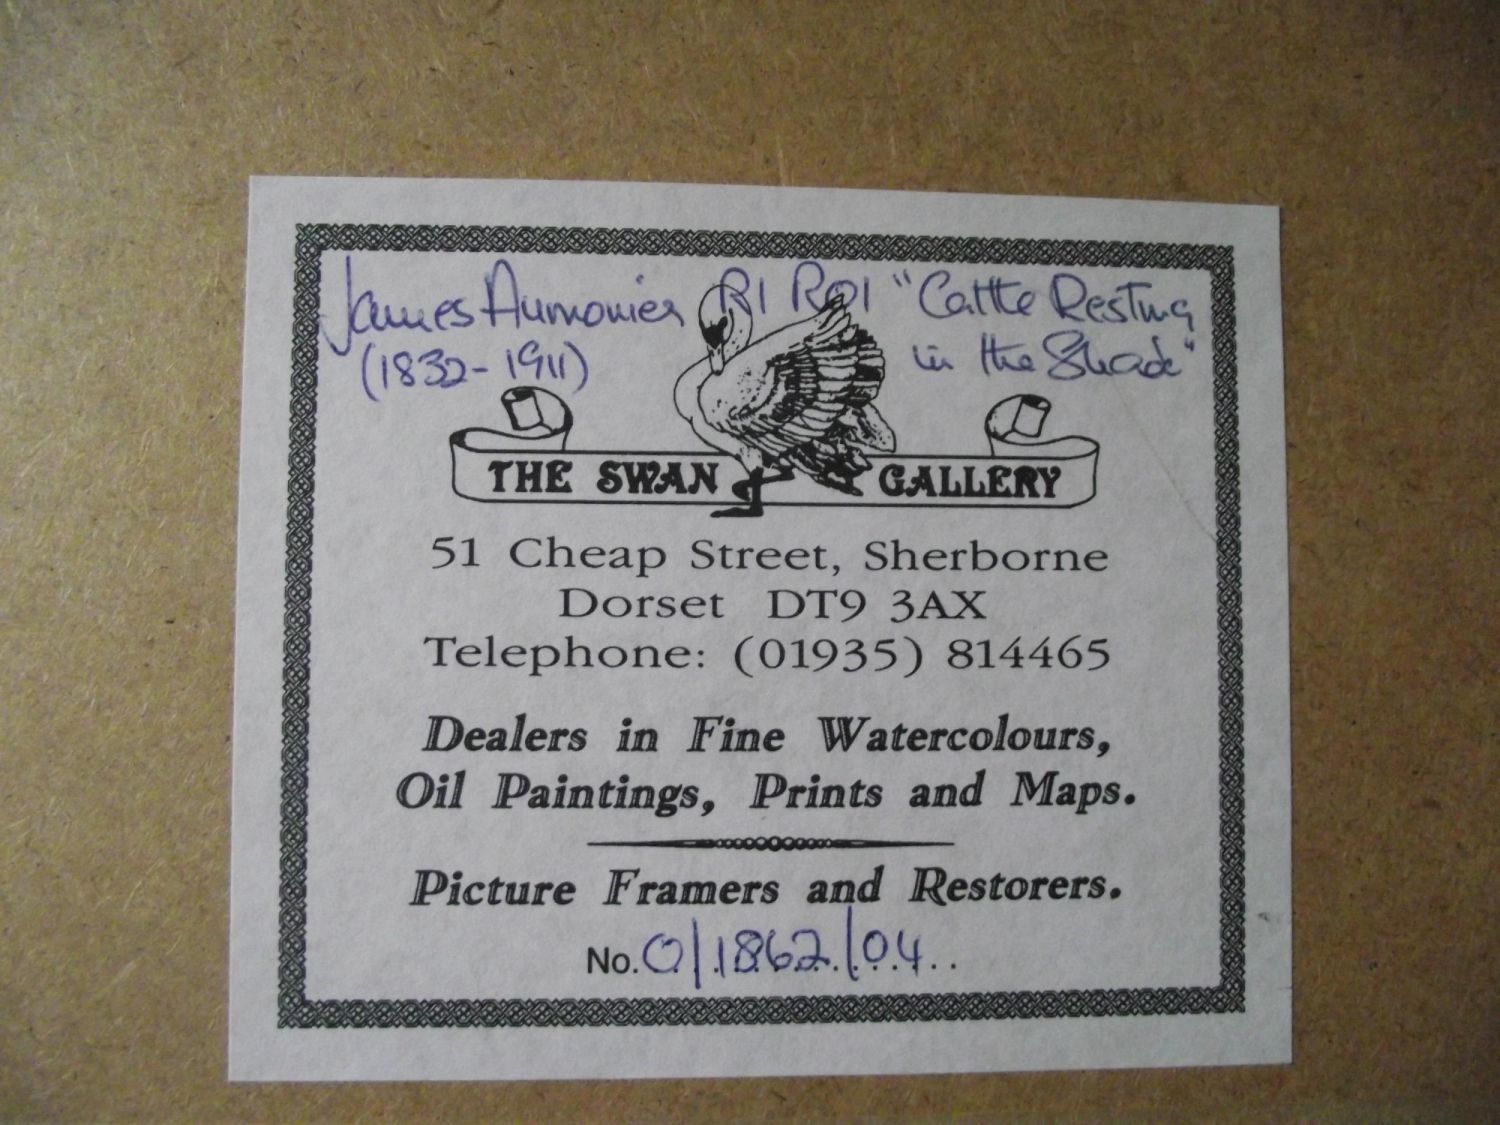 James Aumonier RI ROI "Cattle Resting
(1832-1911) in the Shade"
THE SWAN GALLERY
51 Cheap Street, Sherborne
Dorset DT9 3AX
Telephone: (01935) 814465
Dealers in Fine Watercolours,
Oil Paintings, Prints and Maps.
Picture Framers and Restorers.
No. 0/1862/04